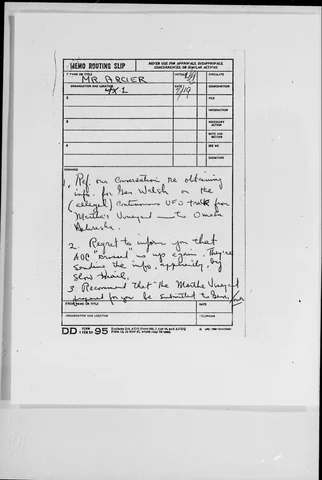 MEMO ROUTING SLIP
NEVER USE FOR APPROVALS, DISAPPROVALS, CONCURRENCES, OR SIMILAR ACTIONS
1 NAME OR TITLE
INITIALS
CIRCULATE
MR. ARCIER
ORGANIZATION AND LOCATION
DATE
COORDINATION
4X1
7/19
2
FILE
INFORMATION
3
NECESSARY ACTION
NOTE AND RETURN
4
SEE ME
SIGNATURE
REMARKS
1. Ref. our Conversation re obtaining
info. for Gen Welsh on the
(alleged) Continuous UFO track from
Martha's Vineyard to Omaha
Nebraska.
2. Regret to inform you that
ADC "crossed" us up again. They're
sending the info, apparently, by
slow mail.
3. Recommend that the Martha Vineyard
prepared for you be submitted to Gen.
FROM NAME OR TITLE
DATE
ORGANIZATION AND LOCATION
TELEPHONE
DD FORM 1 FEB 50 95